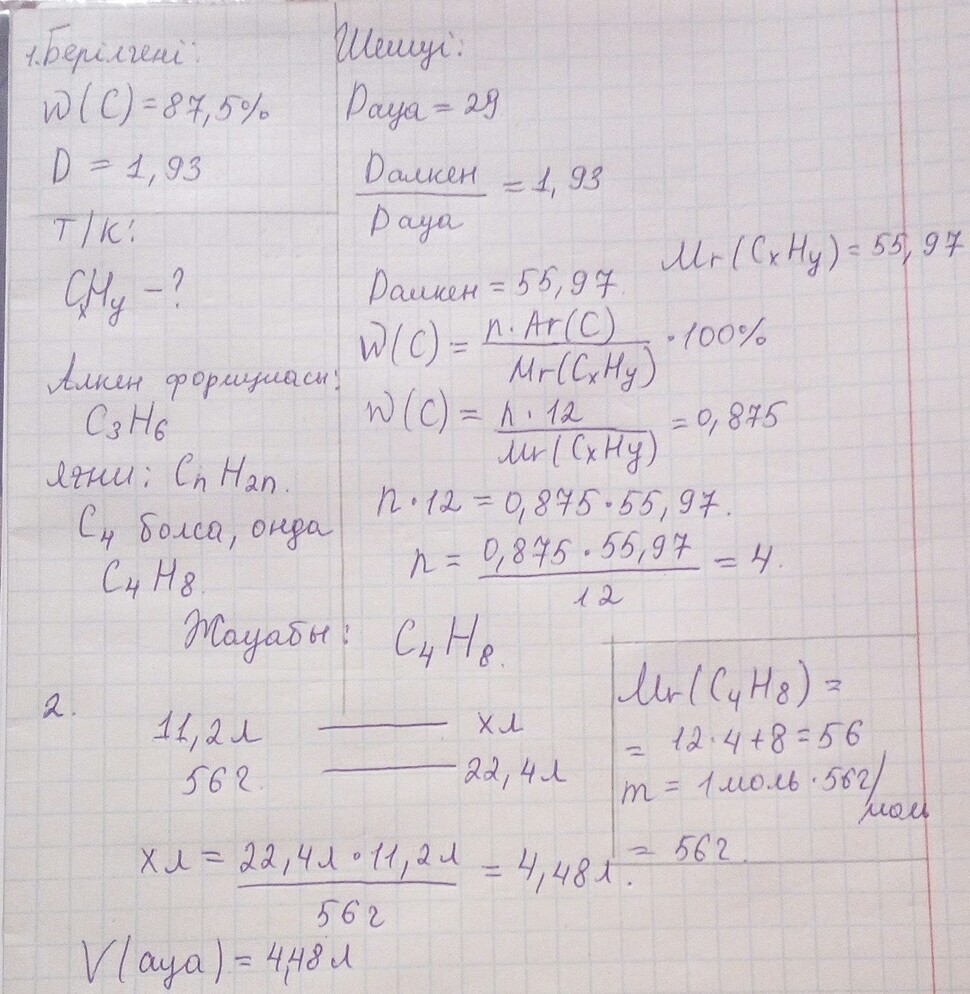 1. Берілгені:
W(C)=87,5%
D = 1,93
Т/К:
CxHy – ?
Алкен формуласы:
C3H6
Яғни: CnH2n.
C4 болса, онда
C4H8.
Шешуі:
Dауа = 29
Dалкен / Dауа = 1,93
Dалкен = 55,97. Mr(CxHy) = 55,97
W(C) = n·Ar(C) / Mr(CxHy) ·100%
W(C) = n·12 / Mr(CxHy) = 0,875
n·12 = 0,875·55,97.
n = 0,875·55,97 / 12 = 4.
Жауабы: C4H8.
2.
11,2л —— хл
56г. —— 22,4л
Mr(C4H8) =
= 12·4+8=56
m = 1моль·56г/моль
= 56г.
хл = 22,4л·11,2л / 56г = 4,48л.
V(ауа) = 4,48л